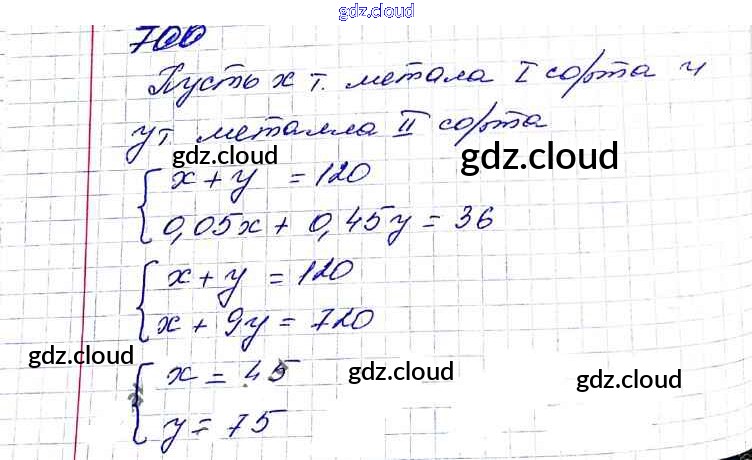 gdz.cloud
700
Пусть x т. метала I сорта и
y т металла II сорта
gdz.cloud
gdz.cloud
x + y = 120
0,05x + 0,45y = 36
x + y = 120
x + 9y = 720
gdz.cloud
x = 45
gdz.cloud
gdz.cloud
y = 75